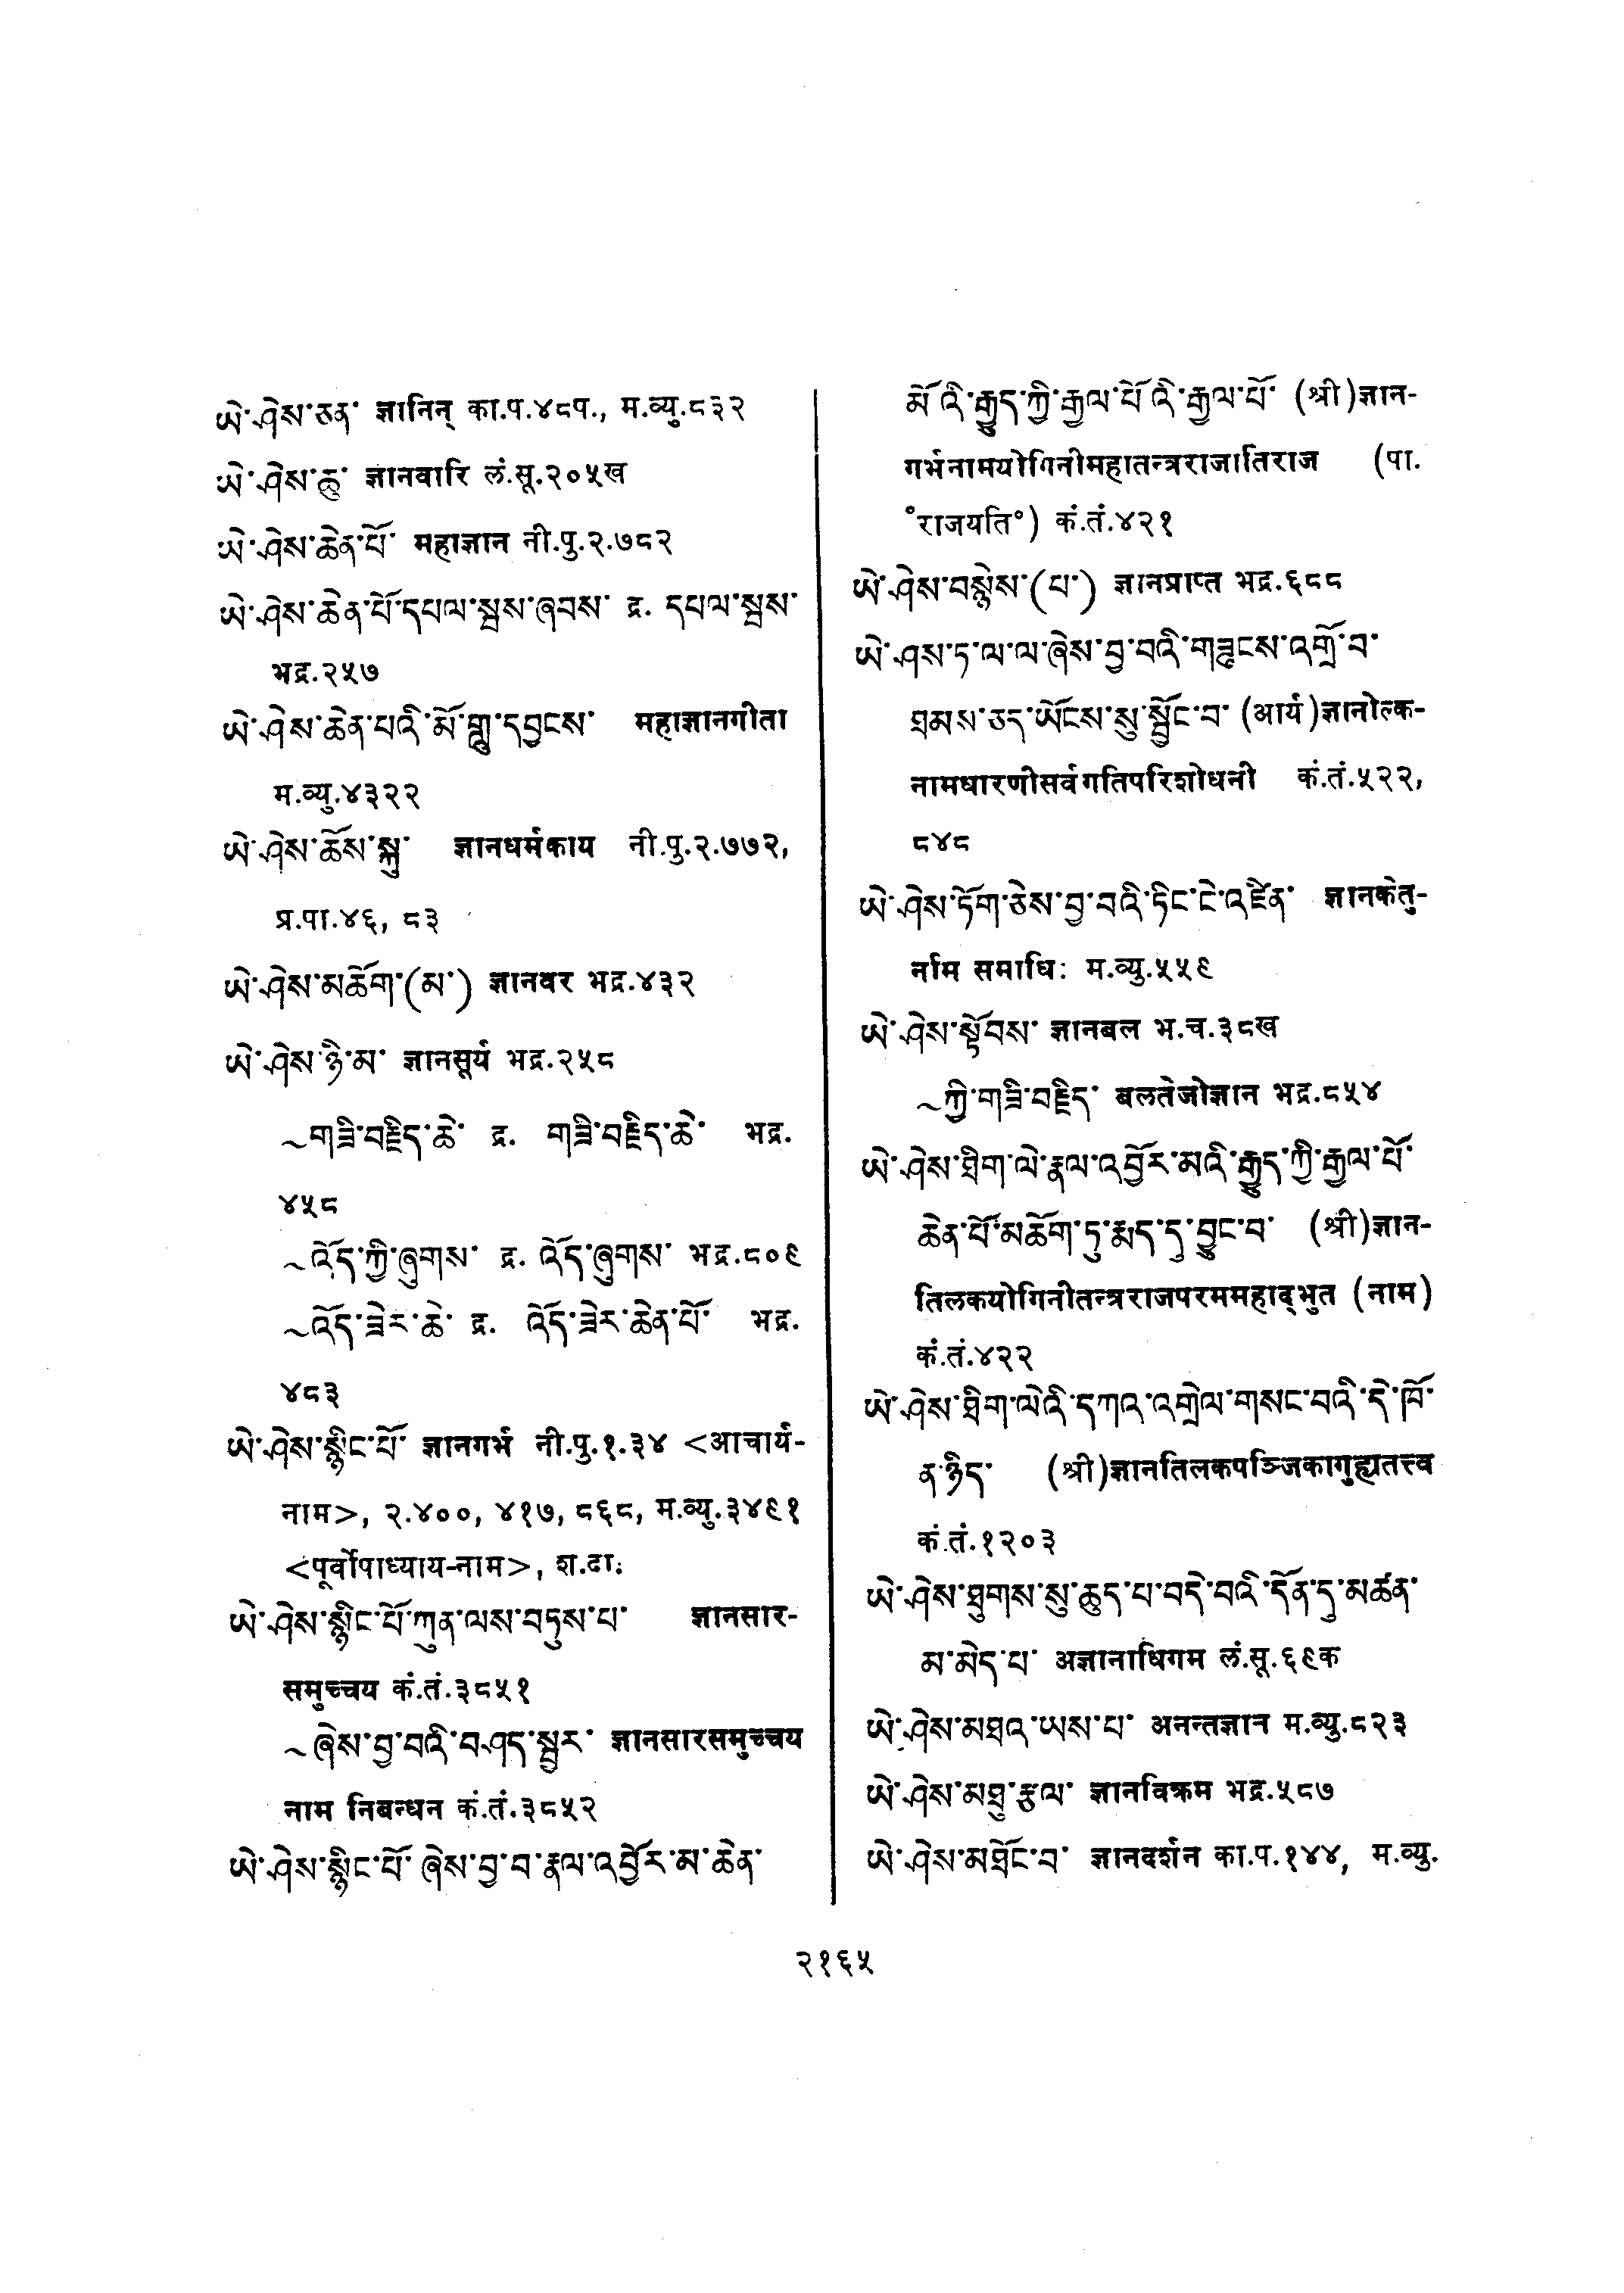 ཡེ་ཤེས་ཅན་ ज्ञानिन् का.प.४८प., म.व्यु.८३२
ཡེ་ཤེས་ཆུ་ ज्ञानवारि लं.सू.२०५ख
ཡེ་ཤེས་ཆེན་པོ་ महाज्ञान नी.पु.२.७८२
ཡེ་ཤེས་ཆེན་པོ་དཔལ་སྦས་ཞབས་ द्र. དཔལ་སྦས་
भद्र.२५७
ཡེ་ཤེས་ཆེན་པའི་མོ་གླུ་དབྱངས་ महाज्ञानगीता
म.व्यु.४३२२
ཡེ་ཤེས་ཆོས་སྐུ་ ज्ञानधर्मकाय नी.पु.२.७७२,
प्र.पा.४६, ८३
ཡེ་ཤེས་མཆོག་(མ་) ज्ञानवर भद्र.४३२
ཡེ་ཤེས་ཉི་མ་ ज्ञानसूर्य भद्र.२५८
~གཟི་བརྗིད་ཆེ་ द्र. གཟི་བརྗིད་ཆེ་ भद्र.
४५८
~འོད་ཀྱི་ཞུགས་ द्र. འོད་ཞུགས་ भद्र.८०९
~འོད་ཟེར་ཆེ་ द्र. འོད་ཟེར་ཆེན་པོ་ भद्र.
४८३
ཡེ་ཤེས་སྙིང་པོ་ ज्ञानगर्भ नी.पु.१.३४ <आचार्य-
नाम>, २.४००, ४१७, ८६८, म.व्यु.३४९१
<पूर्वोपाध्याय-नाम>, श.दा.
ཡེ་ཤེས་སྙིང་པོ་ཀུན་ལས་བཏུས་པ་ ज्ञानसार-
समुच्चय कं.तं.३८५१
~ཞེས་བྱ་བའི་བཤད་སྦྱར་ ज्ञानसारसमुच्चय
नाम निबन्धन कं.तं.३८५२
ཡེ་ཤེས་སྙིང་པོ་ ཞེས་བྱ་བ་རྣལ་འབྱོར་མ་ཆེན་
མོ་འི་རྒྱུད་ཀྱི་རྒྱལ་པོ་འི་རྒྱལ་པོ་ (श्री)ज्ञान-
गर्भनामयोगिनीमहातन्त्रराजातिराज (पा.
°राजयति°) कं.तं.४२१
ཡེ་ཤེས་བརྙེས་(པ་) ज्ञानप्राप्त भद्र.६८८
ཡེ་ཤས་ཏ་ལ་ལ་ཞེས་བྱ་བའི་གཟུངས་འགྲོ་བ་
ཐམས་ཅད་ཡོངས་སུ་སྦྱོང་བ་ (आर्य)ज्ञानोल्क-
नामधारणीसर्वगतिपरिशोधनी कं.तं.५२२,
८४८
ཡེ་ཤེས་ཏོག་ཅེས་བྱ་བའི་ཏིང་ངེ་འཛིན་ ज्ञानकेतु-
र्नाम समाधिः म.व्यु.५५९
ཡེ་ཤེས་སྟོབས་ ज्ञानबल भ.च.३८ख
~ཀྱི་གཟི་བརྗིད་ बलतेजोज्ञान भद्र.८५४
ཡེ་ཤེས་ཐིག་ལེ་རྣལ་འབྱོར་མའི་རྒྱུད་ཀྱི་རྒྱལ་པོ་
ཆེན་པོ་མཆོག་ཏུ་རྨད་དུ་བྱུང་བ་ (श्री)ज्ञान-
तिलकयोगिनीतन्त्रराजपरममहाद्भुत (नाम)
कं.तं.४२२
ཡེ་ཤེས་ཐིག་ལེའི་དཀའ་འགྲེལ་གསང་བའི་དེ་ཁོ་
ན་ཉིད་ (श्री)ज्ञानतिलकपञ्जिकागुह्यतत्त्व
कं.तं.१२०३
ཡེ་ཤེས་ཐུགས་སུ་ཆུད་པ་བདེ་བའི་དོན་དུ་མཚན་
མ་མེད་པ་ अज्ञानाधिगम लं.सू.६९क
ཡེ་ཤེས་མཐའ་ཡས་པ་ अनन्तज्ञान म.व्यु.८२३
ཡེ་ཤེས་མཐུ་རྩལ་ ज्ञानविक्रम भद्र.५८७
ཡེ་ཤེས་མཐོང་བ་ ज्ञानदर्शन का.प.१४४, म.व्यु.
२१६५